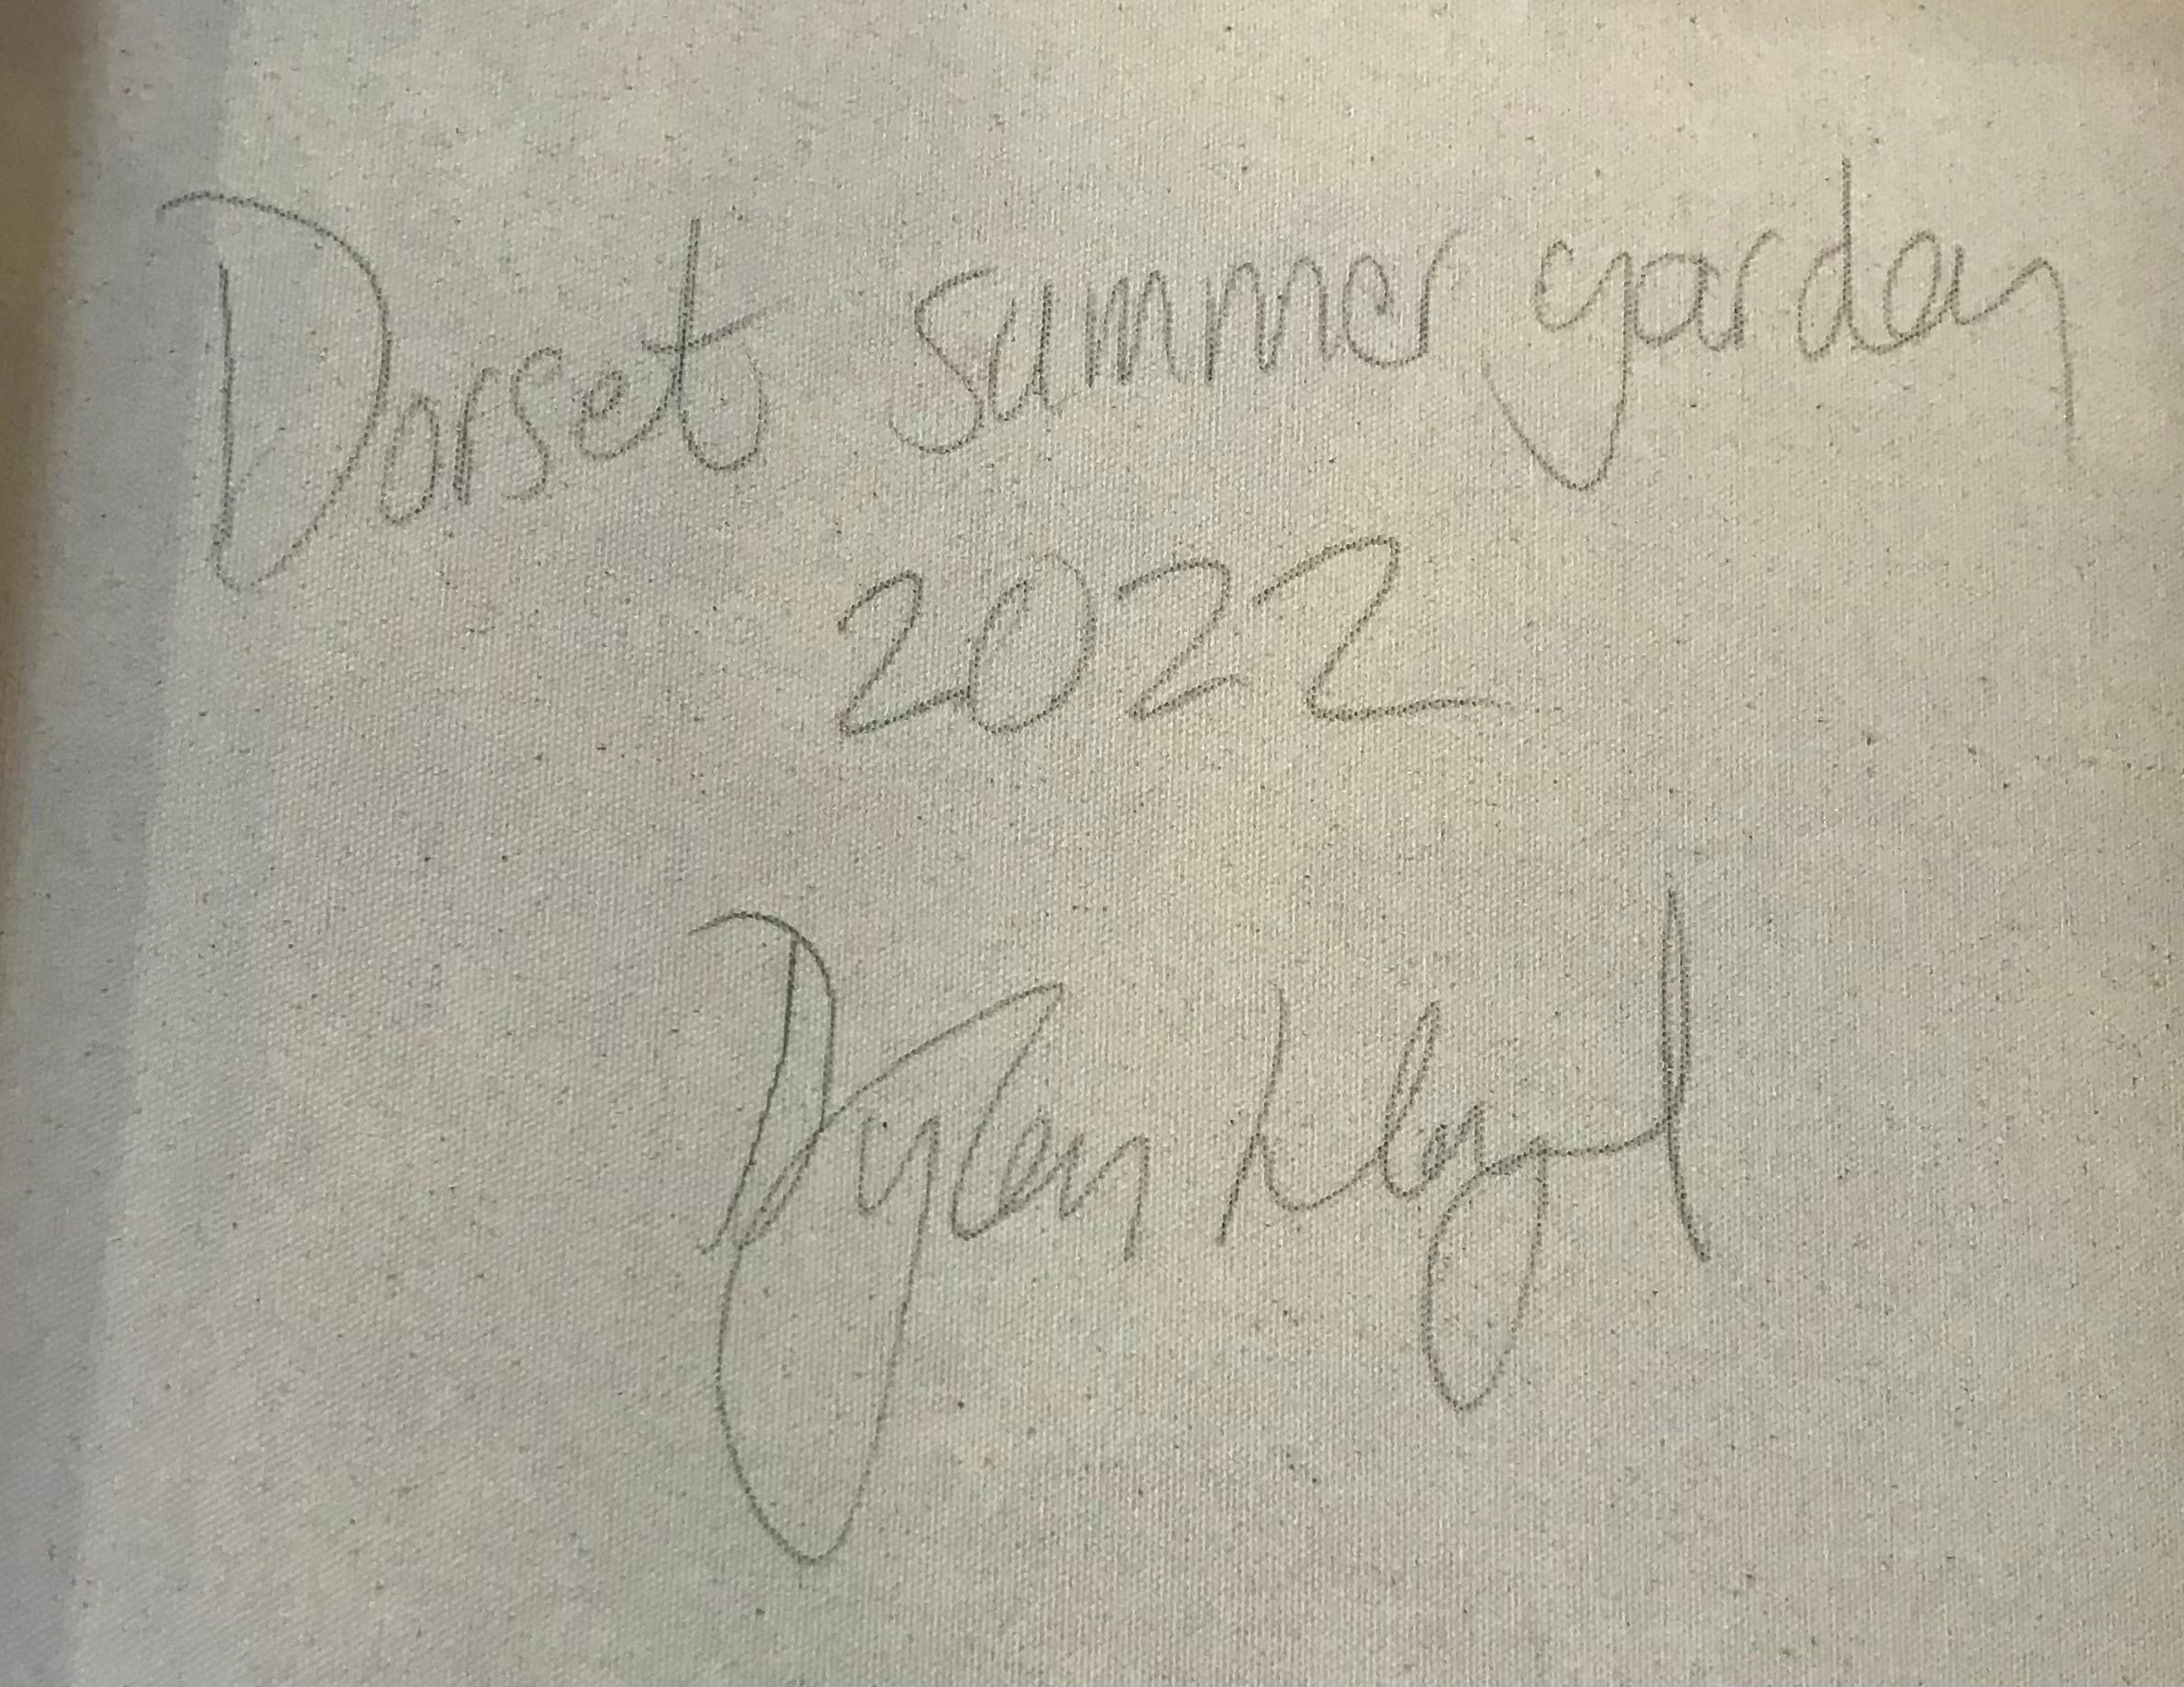 Dorset summer garden
2022
Dylan Lloyd